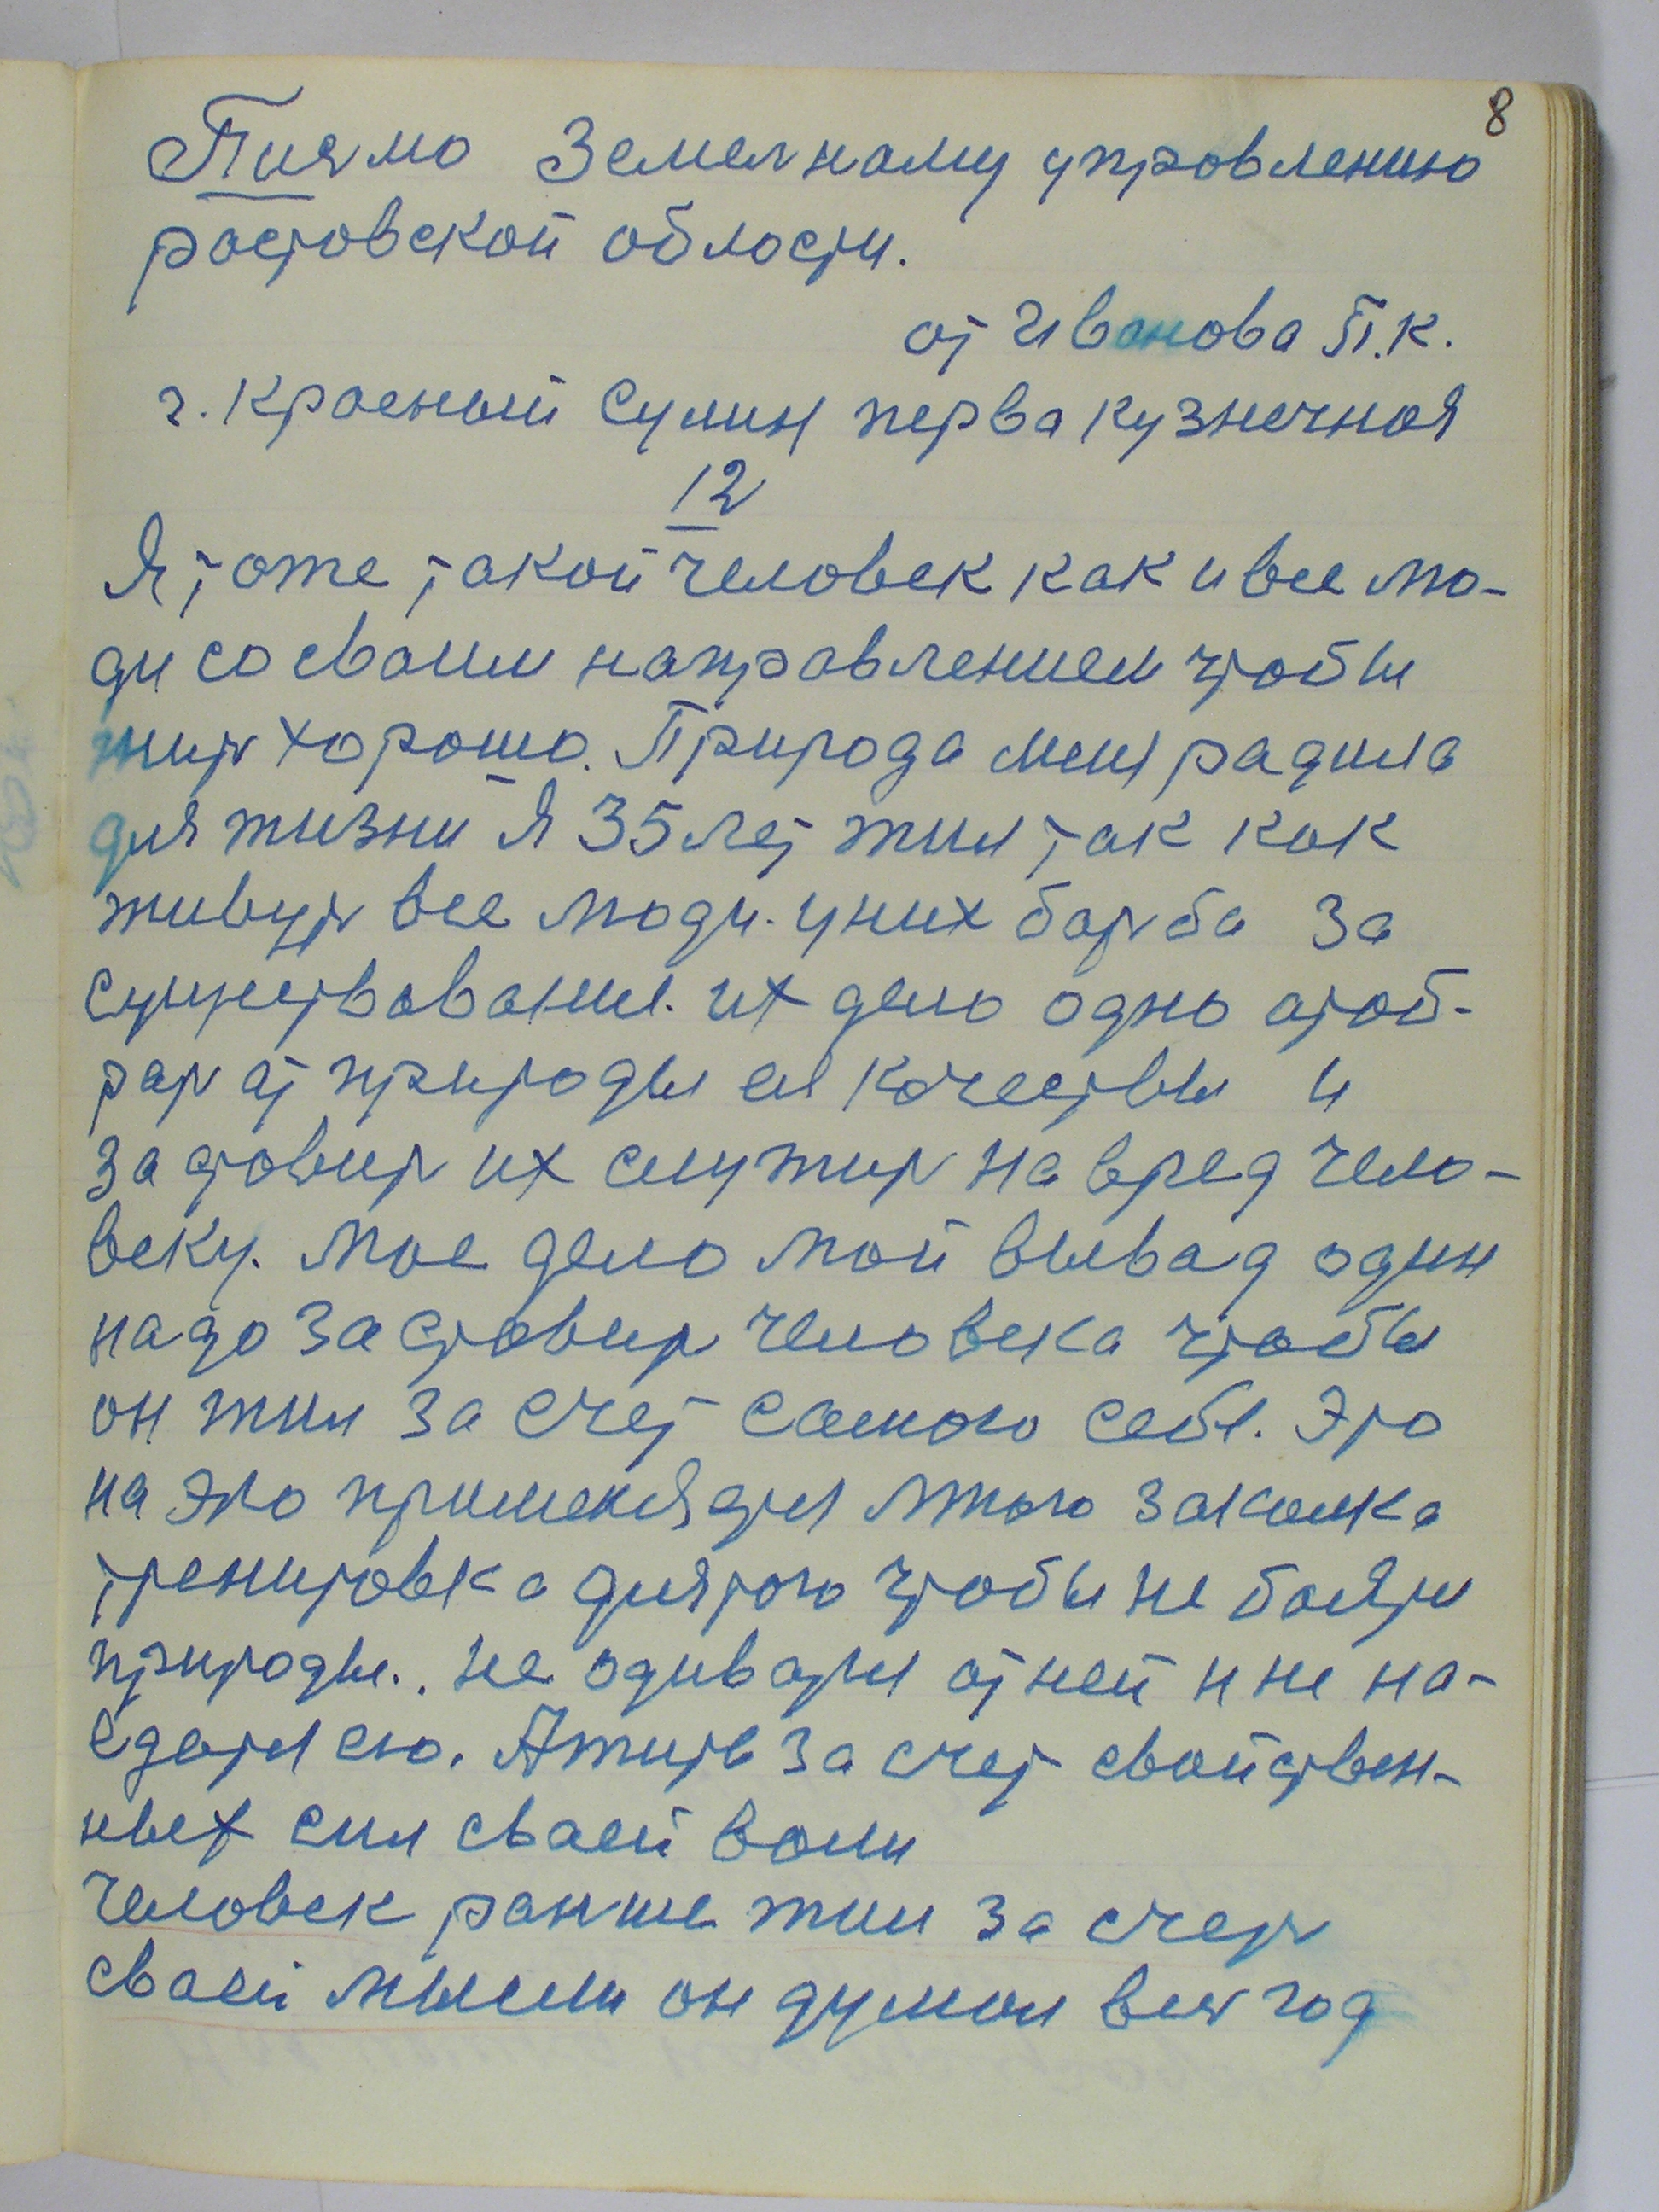 8
Писмо Земелнаму упровлению
ростовской облости.
от Иванова П.К.
г. Красный Сулин перва кузнечноя
12
Я тоже такой человек как и все лю-
ди со сваим направлением чтобы
жить хорошо. Природа меня радила
для жизни Я 35 лет жил так как
живуть все люди. у них барьба за
существование. их дело одно отоб-
рать от природы ея кочествы и
застовить их служить на вред чело-
веку. мое дело мой вывад один
надо застовить человека чтобы
он жил за счет самого себя. Это
на это применяятся много закалка
тренировка для того чтобы не баятся
природы.. не одиватся от ней и не на-
едатся ею. А жить за счет свойствен-
ных сил сваей воли
Человек раньше жил за счеть
сваей мысли он думал весь год